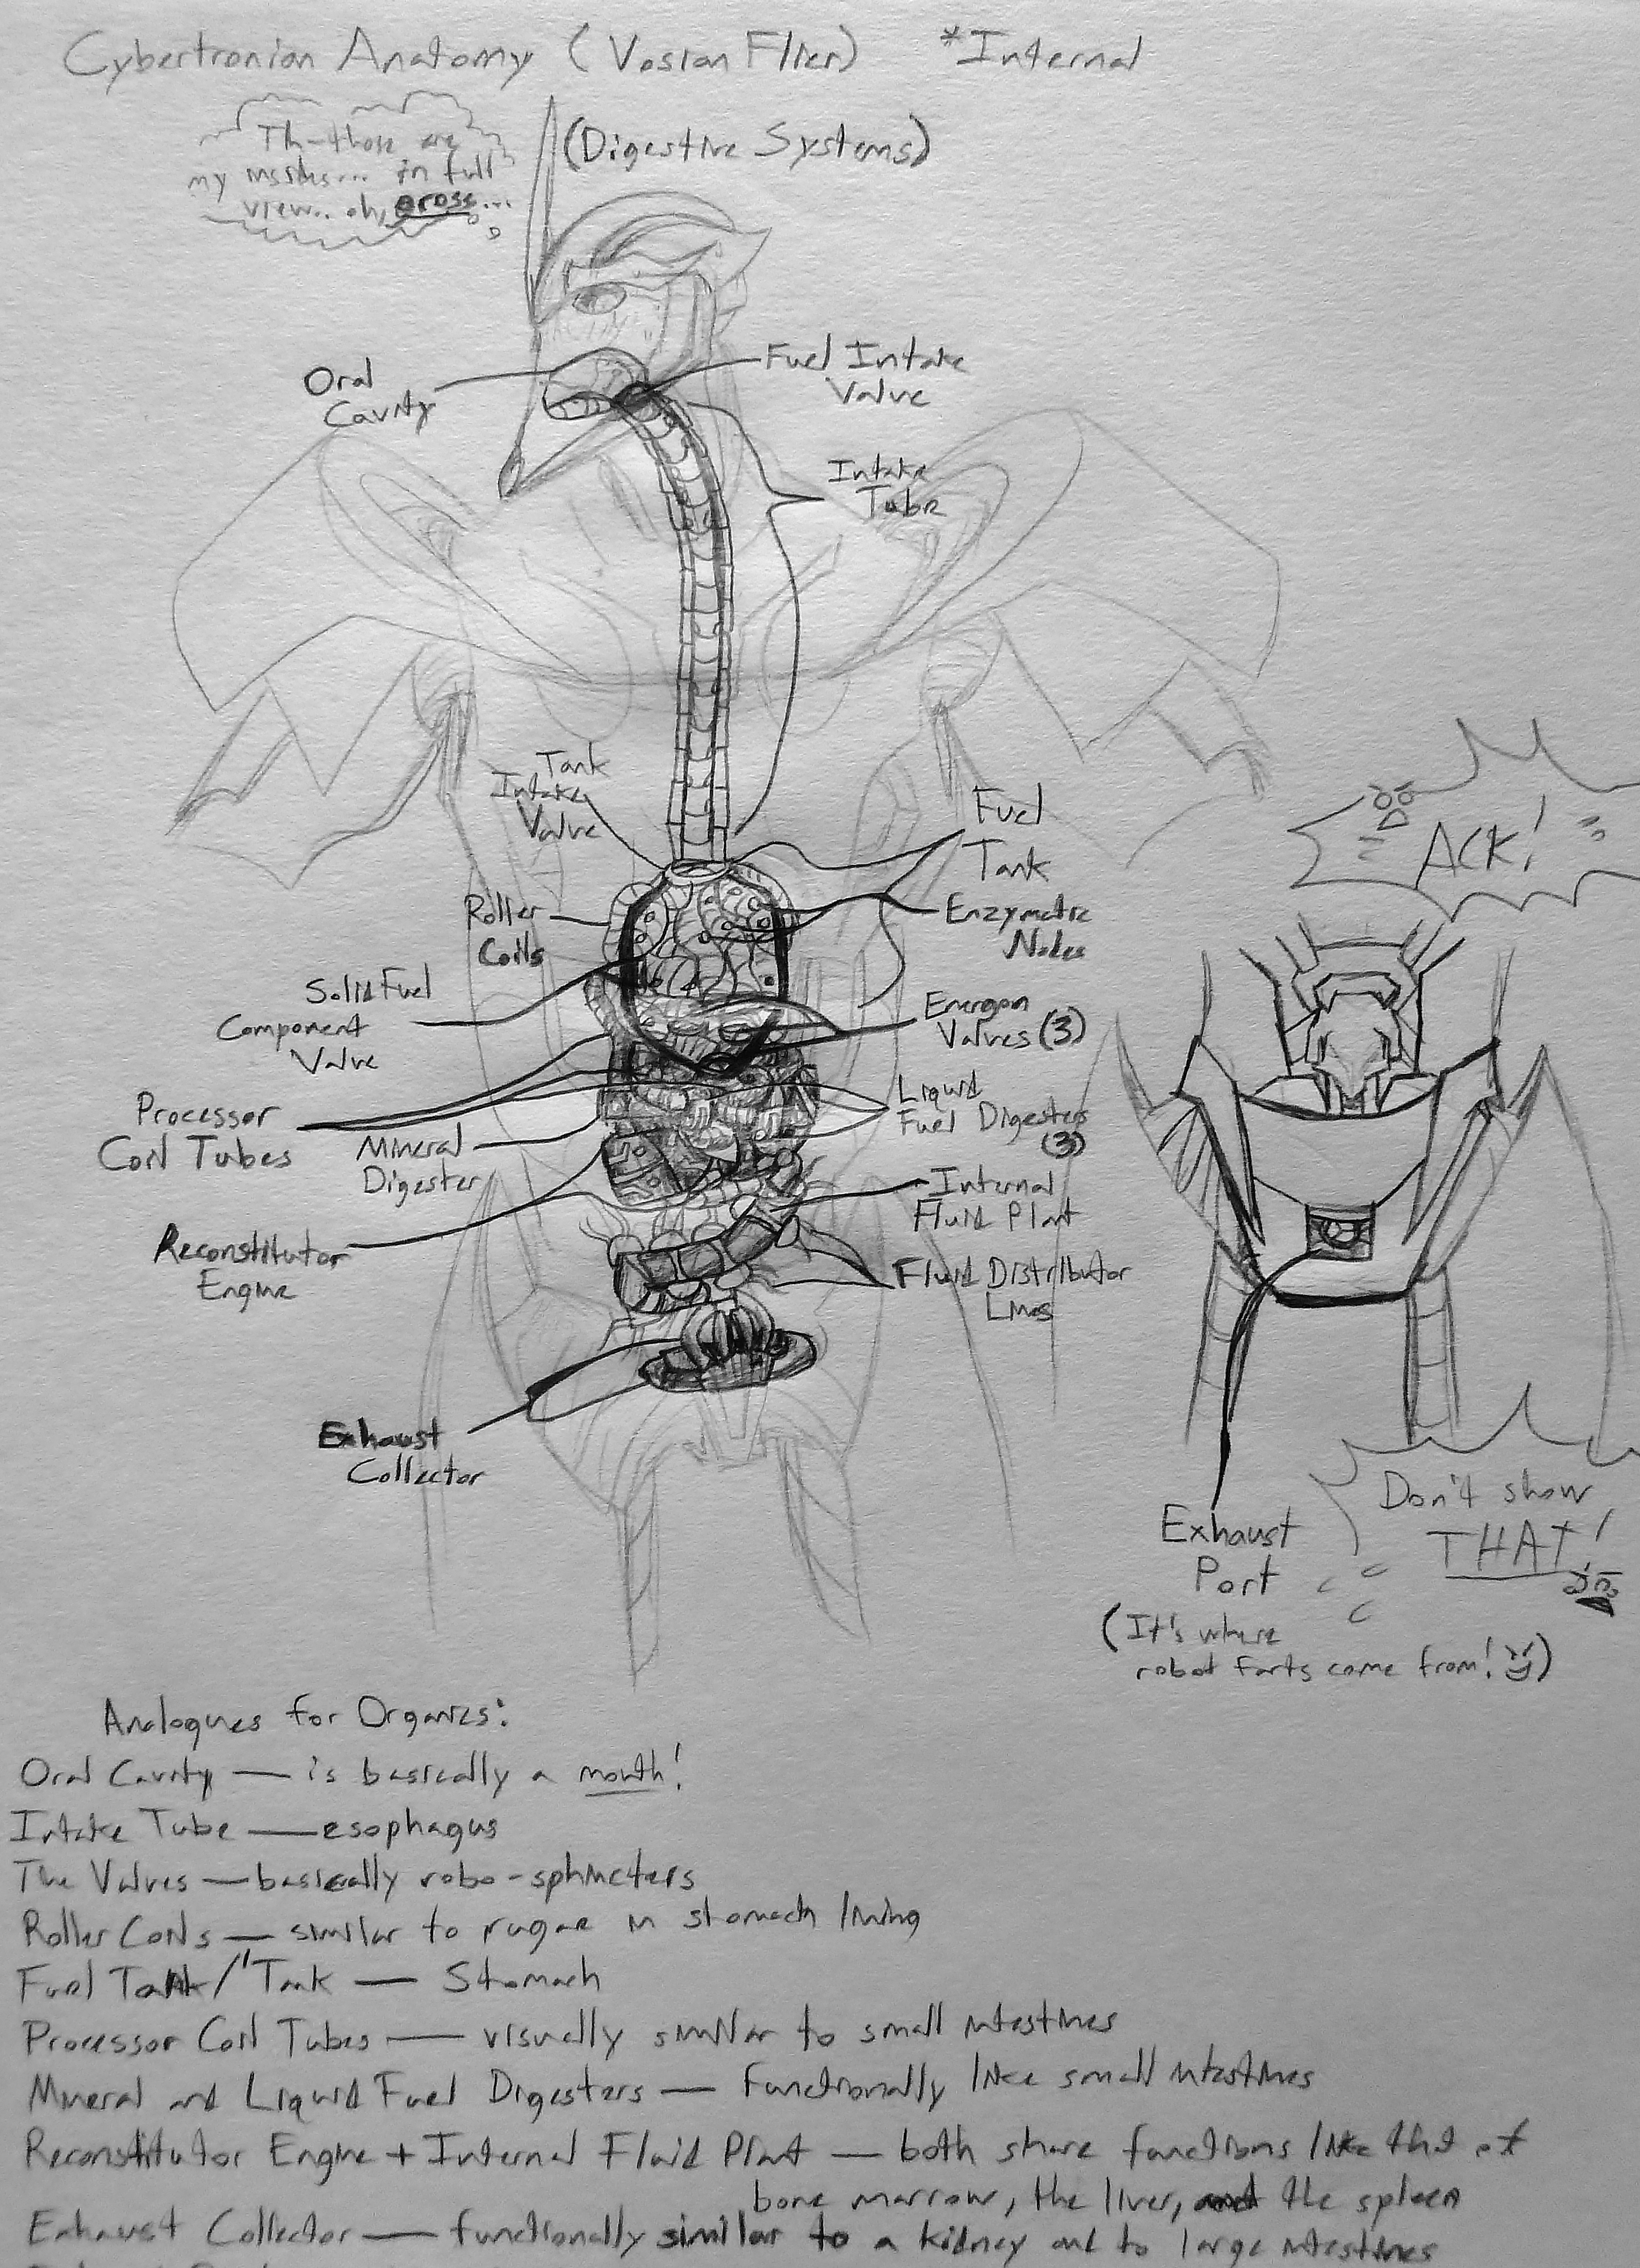 Cybertronian Anatomy (Vosian Flier) *Internal
(Digestive Systems)
Th-those are
my insides... in full
view.. oh, gross...
Oral
Cavity
Fuel Intake
Valve
Intake
Tube
Tank
Intake
Valve
Fuel
Tank
Roller
Coils
Enzymatic
Nodes
Solid Fuel
Component
Valve
Energon
Valves (3)
Processor
Coil Tubes
Liquid
Fuel Digesters
(3)
Mineral
Digester
Internal
Fluid Plant
Reconstitutor
Engine
Fluid Distributor
Lines
Exhaust
Collector
ACK!
Don't show
THAT!
Exhaust
Port
(It's where
robot farts come from!)
Analogues for Organics:
Oral Cavity — is basically a mouth!
Intake Tube — esophagus
The Valves — basically robo-sphincters
Roller Coils — similar to rugae in stomach lining
Fuel Tank/"Tank — Stomach
Processor Coil Tubes — visually similar to small intestines
Mineral and Liquid Fuel Digesters — Functionally like small intestines
Reconstitutor Engine + Internal Fluid Plant — both share functions like that of
bone marrow, the liver, and the spleen
Exhaust Collector — functionally similar to a kidney and to large intestines